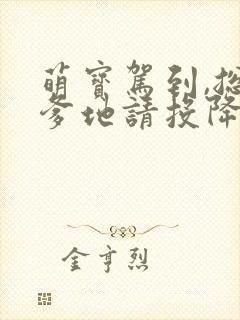 萌寶駕到,總
爹地請投降
金亨烈